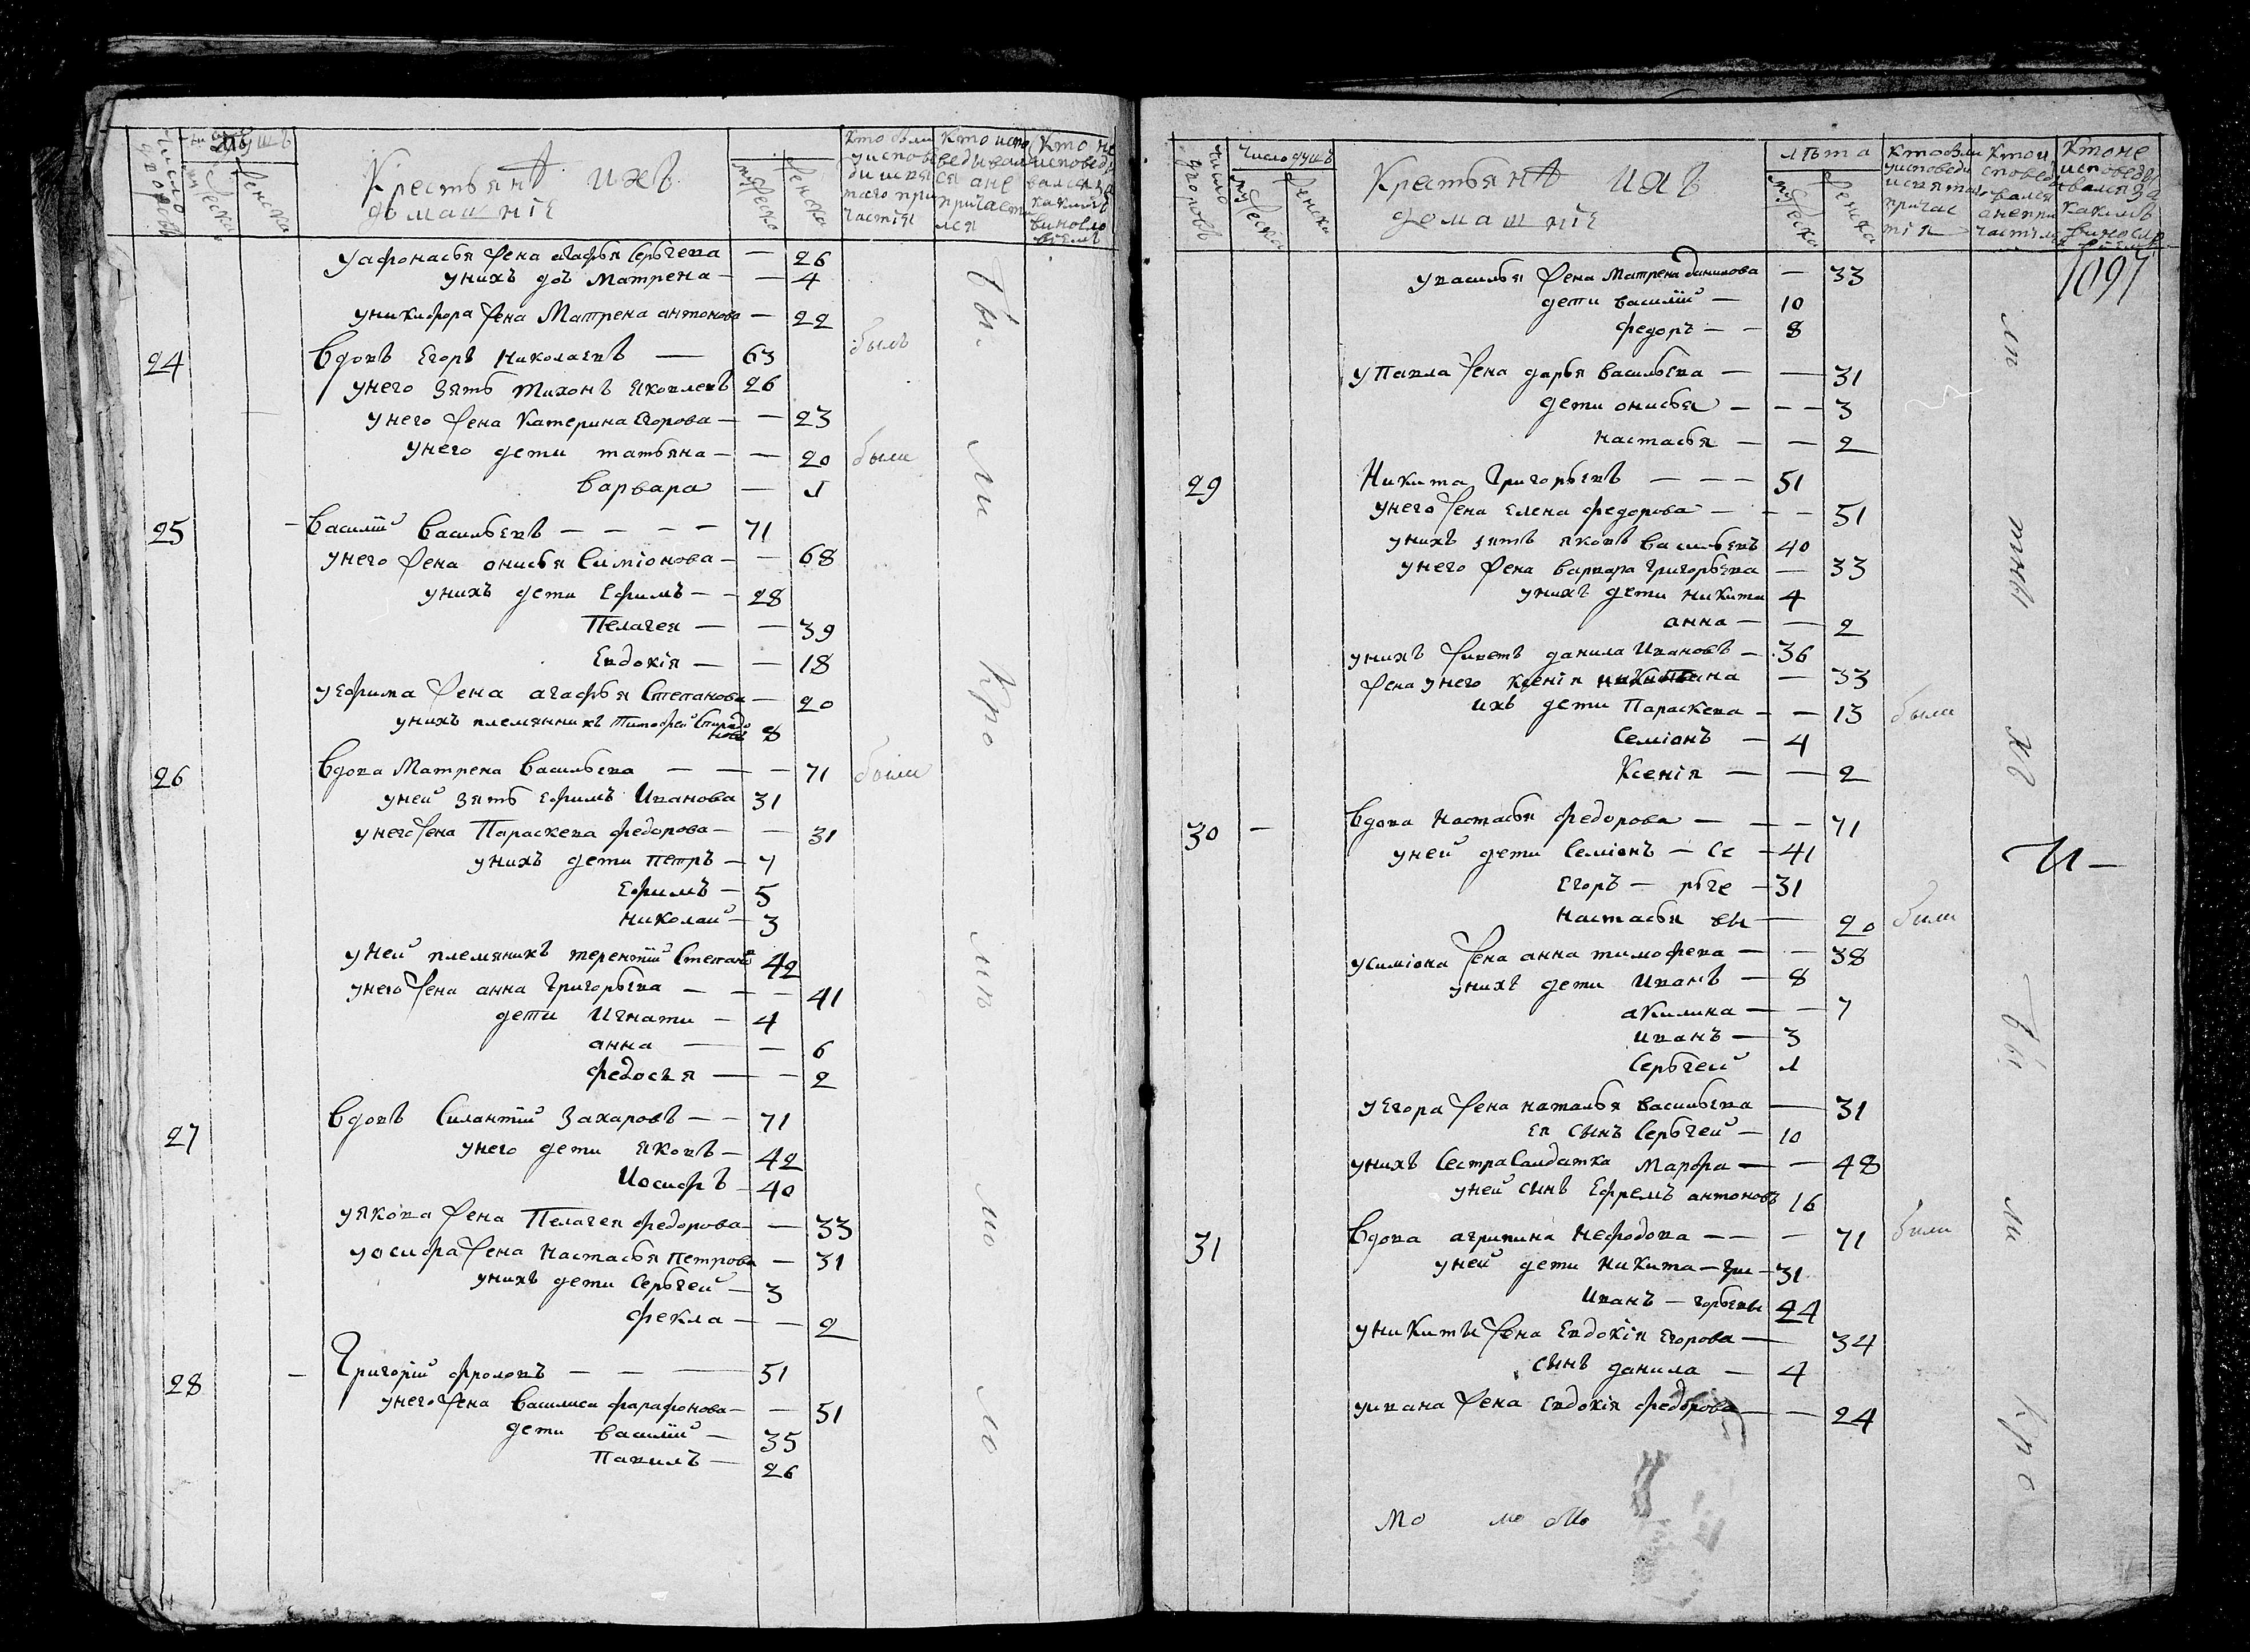 Крестьянѣ ихъ
домашнiе
У афонасья жена агафья Сергѣева — 26
у нихъ доч матрена — — 4
у никифора жена Матрена антонова — 22
24 Вдовъ Егоръ Николаевъ — 63 былъ
у него зять тихонъ Яковлевъ 26
у него жена Катерина Егорова — — 23
у него дети татьяна — — 20 были
варвара — 1
25 — Василiй Васильевъ — — — — 71
у него жена онисья Симiонова — — 68
у нихъ дети Ефимъ — — 28
Пелагея — — 39
Евдокiя — — 18
у Ефима жена агафья Степанова — 20
у нихъ племянникъ тимофей Спиридоновъ 8
26 Вдова Матрена Васильева — — — 71 были
у ней зять Ефимъ Иванова 31
у него жена Параскева федорова — — 31
у нихъ дети петръ — 7
Ефимъ — 5
николаи — 3
у ней племяникъ терентiй Степанов 42
у него жена анна Григорьева — — — 41
дети Игнати — 4
анна — — 6
федосья — — 2
27 Вдовъ Силантiй Захаровъ — — 71
у него дети яковъ — 42
Иосифъ — 40
у якова жена Пелагея федорова — — 33
у осифа жена Настасья петрова — 31
у нихъ дети Сергѣей — 3
фекла — — 2
28 — Григорiй фроловъ — — — 51
у него жена Василиса фарафонова — — 51
дети василiй — 35
Павилъ — 26
бы
ли
кро
мл
мо
ю
Число дворовъ
Число душъ
мужеска
женска
Крестьянѣ ихъ
домашнiе
лѣта
мужеска
женска
1097
у василья жена Матрена данилова — 33
дети василiй — 10
федоръ — — 8
у Павла жена дарья васильева — — 31
дети онисья — — — 3
настасья — — 2
29 Никита Григорьевъ — — — 51
у него жена Елена федорова — — — 51
у нихъ зять яковъ васильевъ 40
у него жена варвара Григорьева — 33
у нихъ дети никита 4
анна — — 2
у нихъ живетъ данила Ивановъ — 36
жена у него ксенiя никитина — 33
ихъ дети Параскева — — 13 были
Семiонъ — 4
Ксенiя — — 2
30 — Вдова настасья федорова — — — 71
у ней дети Семiонъ — Се — 41
Егоръ — ргѣе — 31
настасья вы — 20 были
у Симiона жена анна тимофева — — 38
у нихъ дети Иванъ — 8
акилина — — 7
иванъ — 3
Сергѣей 1
у Егора жена наталья васильева — 31
ея сынъ Сергѣей — 10
у нихъ сестра Салдатка Марфа — — 48
у ней сынъ Ефремъ антоновъ 16
31 Вдова агрипина Нефодова — — — 71 были
у ней дети никита — Гри — 31
Иванъ — горьевы 24
у никиты жена Евдокiя Егорова — 34
сынъ данила — 4
у ивана жена Евдокiя федорова — — 24
мо
бы
ли
кро